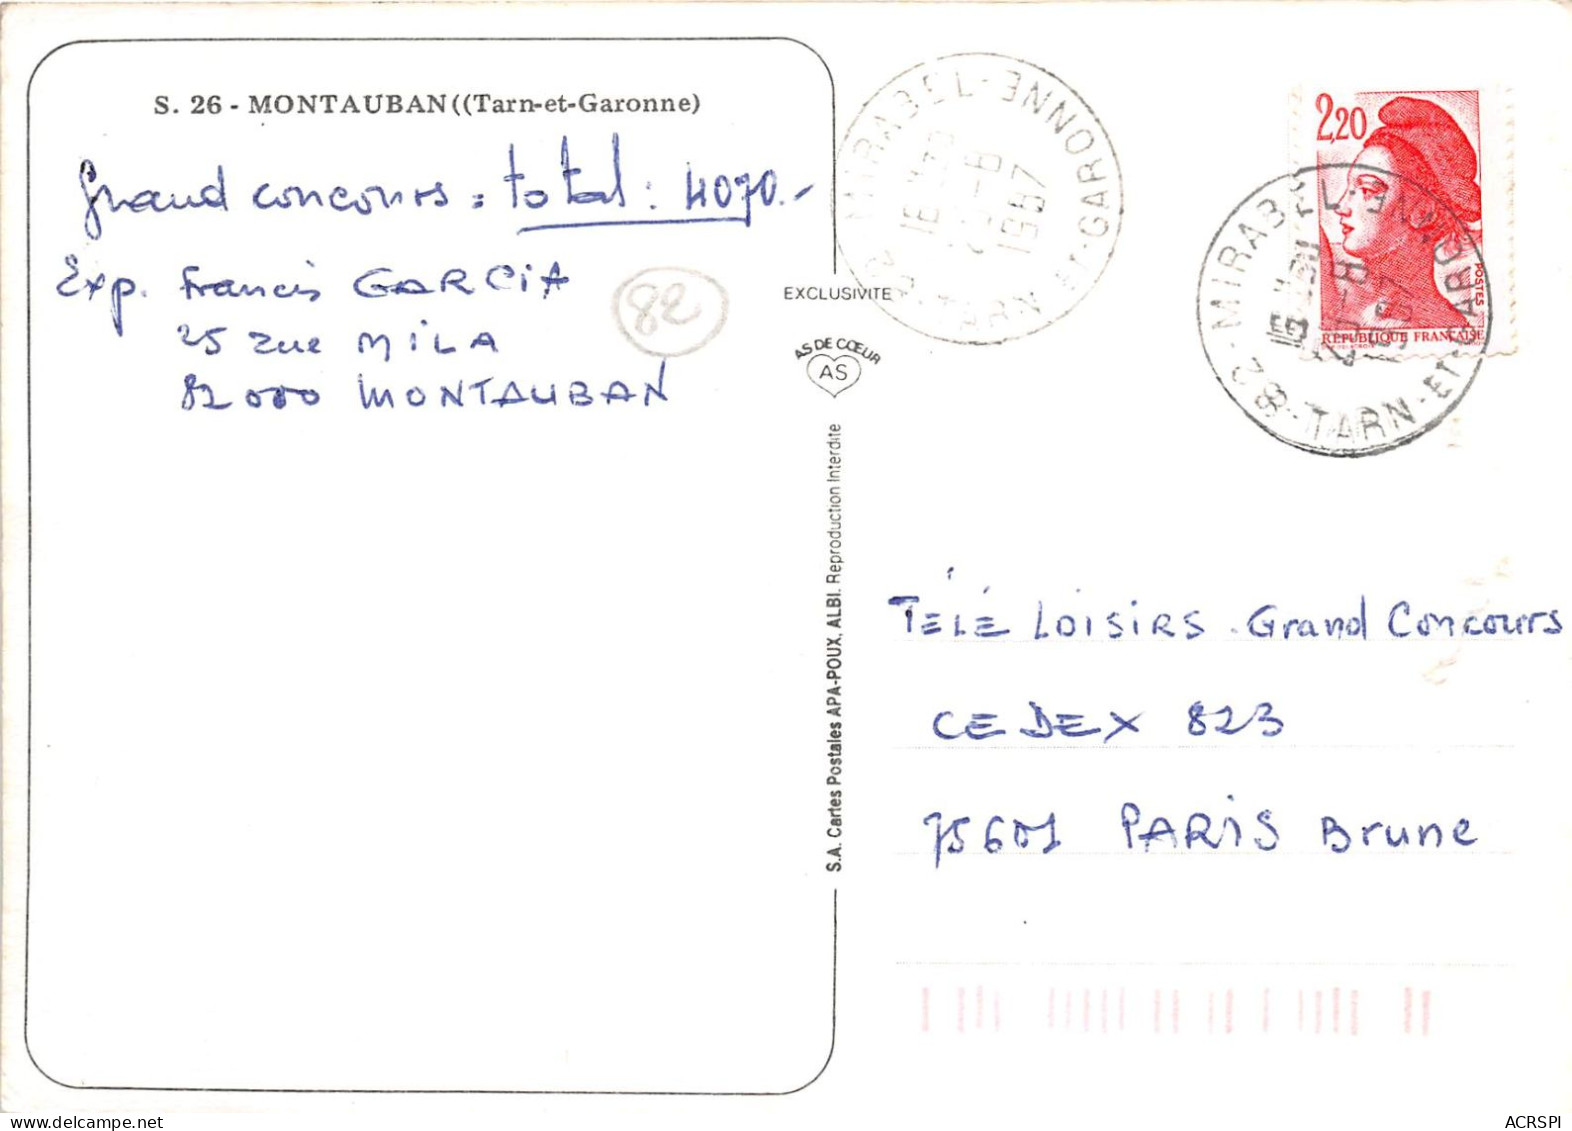 S. 26 - MONTAUBAN((Tarn-et-Garonne)
Grand concours = total : 4070.-
Exp. Francis GARCIA
25 rue MILA
82000 MONTAUBAN
82
EXCLUSIVITE
AS DE CŒUR
AS
S.A. Cartes Postales APA-POUX, ALBI. Reproduction Interdite
82 - MIRABEL - TARN-ET-GARONNE
1987
2,20
POSTES
RÉPUBLIQUE FRANÇAISE
82 - MIRABEL - TARN-ET-GARONNE
TÉLÉ LOISIRS . Grand Concours
CEDEX 823
75601 PARIS Brune
ACRSPI